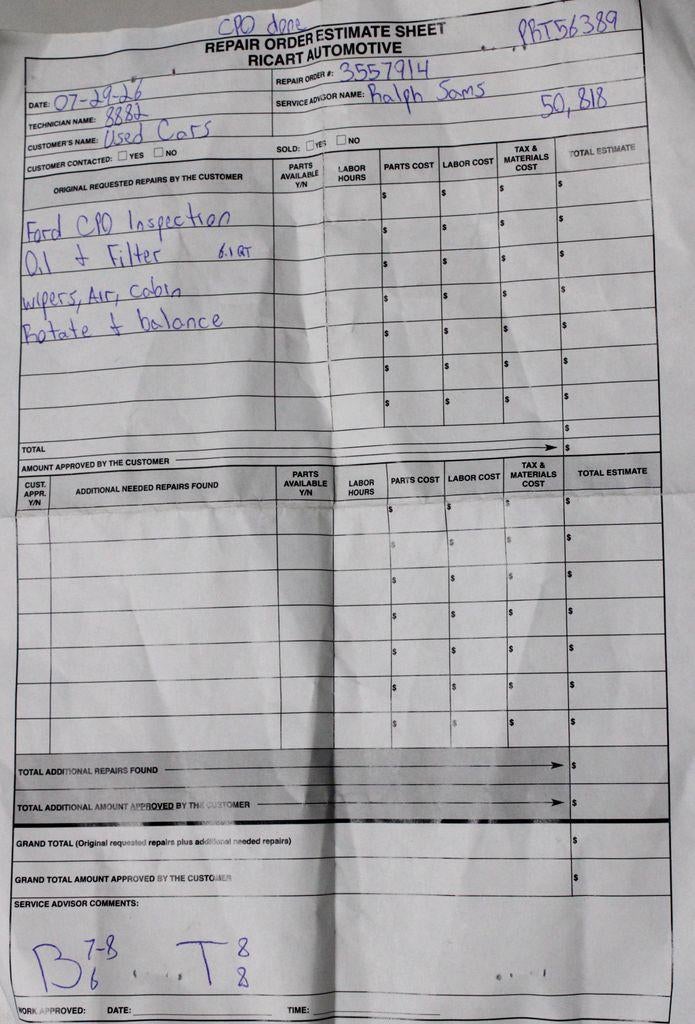 CPO done
REPAIR ORDER ESTIMATE SHEET
RICART AUTOMOTIVE
PRT56389
DATE: 07-29-26
REPAIR ORDER #: 3557914
TECHNICIAN NAME: 8882
SERVICE ADVISOR NAME: Ralph Sams
50,818
CUSTOMER'S NAME: Used Cars
SOLD: YES NO
CUSTOMER CONTACTED: YES NO
ORIGINAL REQUESTED REPAIRS BY THE CUSTOMER PARTS AVAILABLE Y/N LABOR HOURS PARTS COST LABOR COST TAX & MATERIALS COST TOTAL ESTIMATE
$ $ $ $
Ford CPO Inspection $ $ $ $
Oil + Filter 6.1 QT $ $ $ $
wipers, Air, Cabin $ $ $ $
Rotate + balance $ $ $ $
$ $ $ $
$ $ $ $
TOTAL $
AMOUNT APPROVED BY THE CUSTOMER $
CUST. APPR. Y/N ADDITIONAL NEEDED REPAIRS FOUND PARTS AVAILABLE Y/N LABOR HOURS PARTS COST LABOR COST TAX & MATERIALS COST TOTAL ESTIMATE
$ $ $ $
$ $ $ $
$ $ $ $
$ $ $ $
$ $ $ $
$ $ $ $
$ $ $ $
TOTAL ADDITIONAL REPAIRS FOUND $
TOTAL ADDITIONAL AMOUNT APPROVED BY THE CUSTOMER $
GRAND TOTAL (Original requested repairs plus additional needed repairs) $
GRAND TOTAL AMOUNT APPROVED BY THE CUSTOMER $
SERVICE ADVISOR COMMENTS:
B 7-8 6 T 8 8
WORK APPROVED: DATE: TIME: